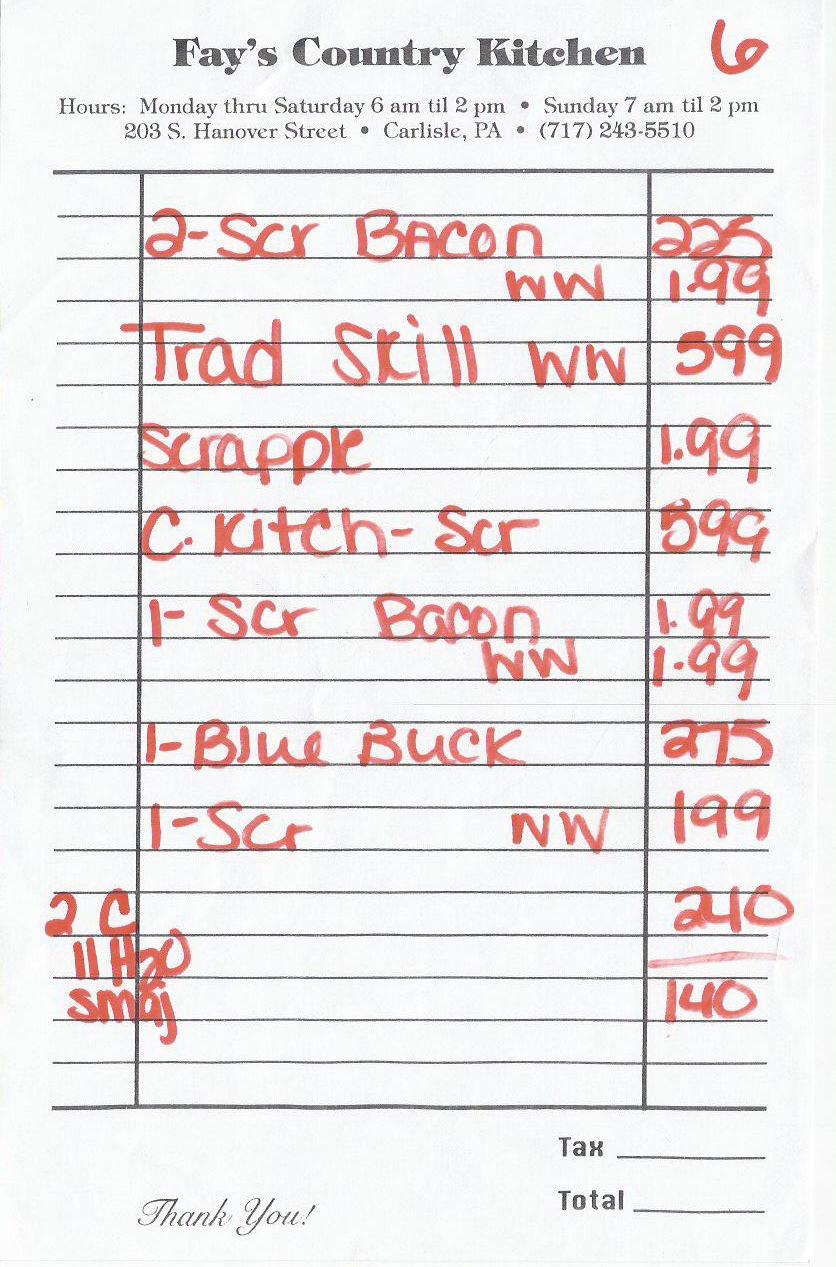 Fay's Country Kitchen 6
Hours: Monday thru Saturday 6 am til 2 pm • Sunday 7 am til 2 pm
203 S. Hanover Street • Carlisle, PA • (717) 243-5510
2-Scr Bacon 225
WW 1.99
Trad Skill WW 599
Scrapple 1.99
C. Kitch- Scr 599
1- Scr Bacon 1.99
WW 1.99
1-Blue Buck 275
1-Scr WW 199
2 C 240
11 H2O
smoj 140
Tax
Total
Thank You!